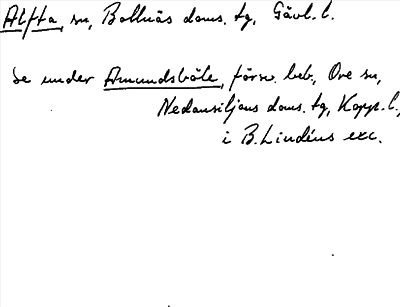 Alfta, sn, Bollnäs doms. tg, Gävl. l.
Se under Amundsböle, försv. beb., Ore sn,
Nedansiljans doms. tg, Kopp. l.,
i B. Lindéns exc.